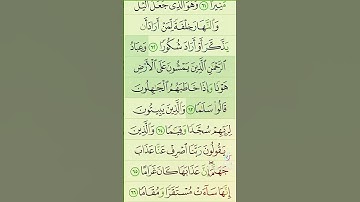 مُّنِيرًا ٦١ وَهُوَ الَّذِي جَعَلَ الَّيْلَ
وَالنَّهَارَ خِلْفَةً لِّمَنْ أَرَادَ أَن
يَذَّكَّرَ أَوْ أَرَادَ شُكُورًا ٦٢ وَعِبَادُ
الرَّحْمَٰنِ الَّذِينَ يَمْشُونَ عَلَى الْأَرْضِ
هَوْنًا وَإِذَا خَاطَبَهُمُ الْجَاهِلُونَ
قَالُوا سَلَامًا ٦٣ وَالَّذِينَ يَبِيتُونَ
لِرَبِّهِمْ سُجَّدًا وَقِيَامًا ٦٤ وَالَّذِينَ
يَقُولُونَ رَبَّنَا اصْرِفْ عَنَّا عَذَابَ
جَهَنَّمَ إِنَّ عَذَابَهَا كَانَ غَرَامًا ٦٥
إِنَّهَا سَاءَتْ مُسْتَقَرًّا وَمُقَامًا ٦٦